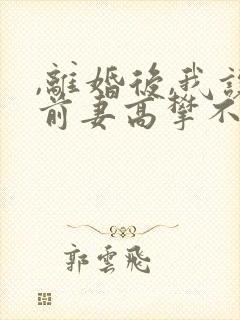 ,離婚後,我
前妻高攀不
郭雲飛